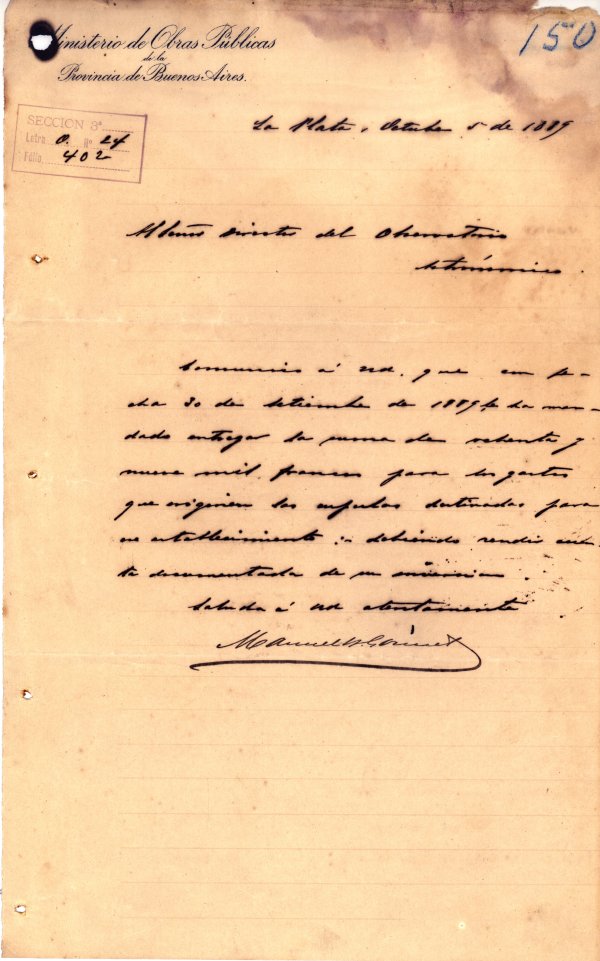 Ministerio de Obras Públicas
de la
Provincia de Buenos Aires.
150
SECCION 3ª
Letra O. Nº 24
Fólio 402
La Plata, Octubre 5 de 1889
Al Señor Director del Observatorio
Astronómico.
Comunico á Ud. que con fe-
cha 30 de Setiembre de 1889 se ha man-
dado entregar la suma de ochenta y
nueve mil francos para los gastos
que originen las cúpulas destinadas para
ese establecimiento:- debiendo rendir cuen-
ta documentada de su inversion.
Saluda á Ud atentamente
Manuel B. Gonnet